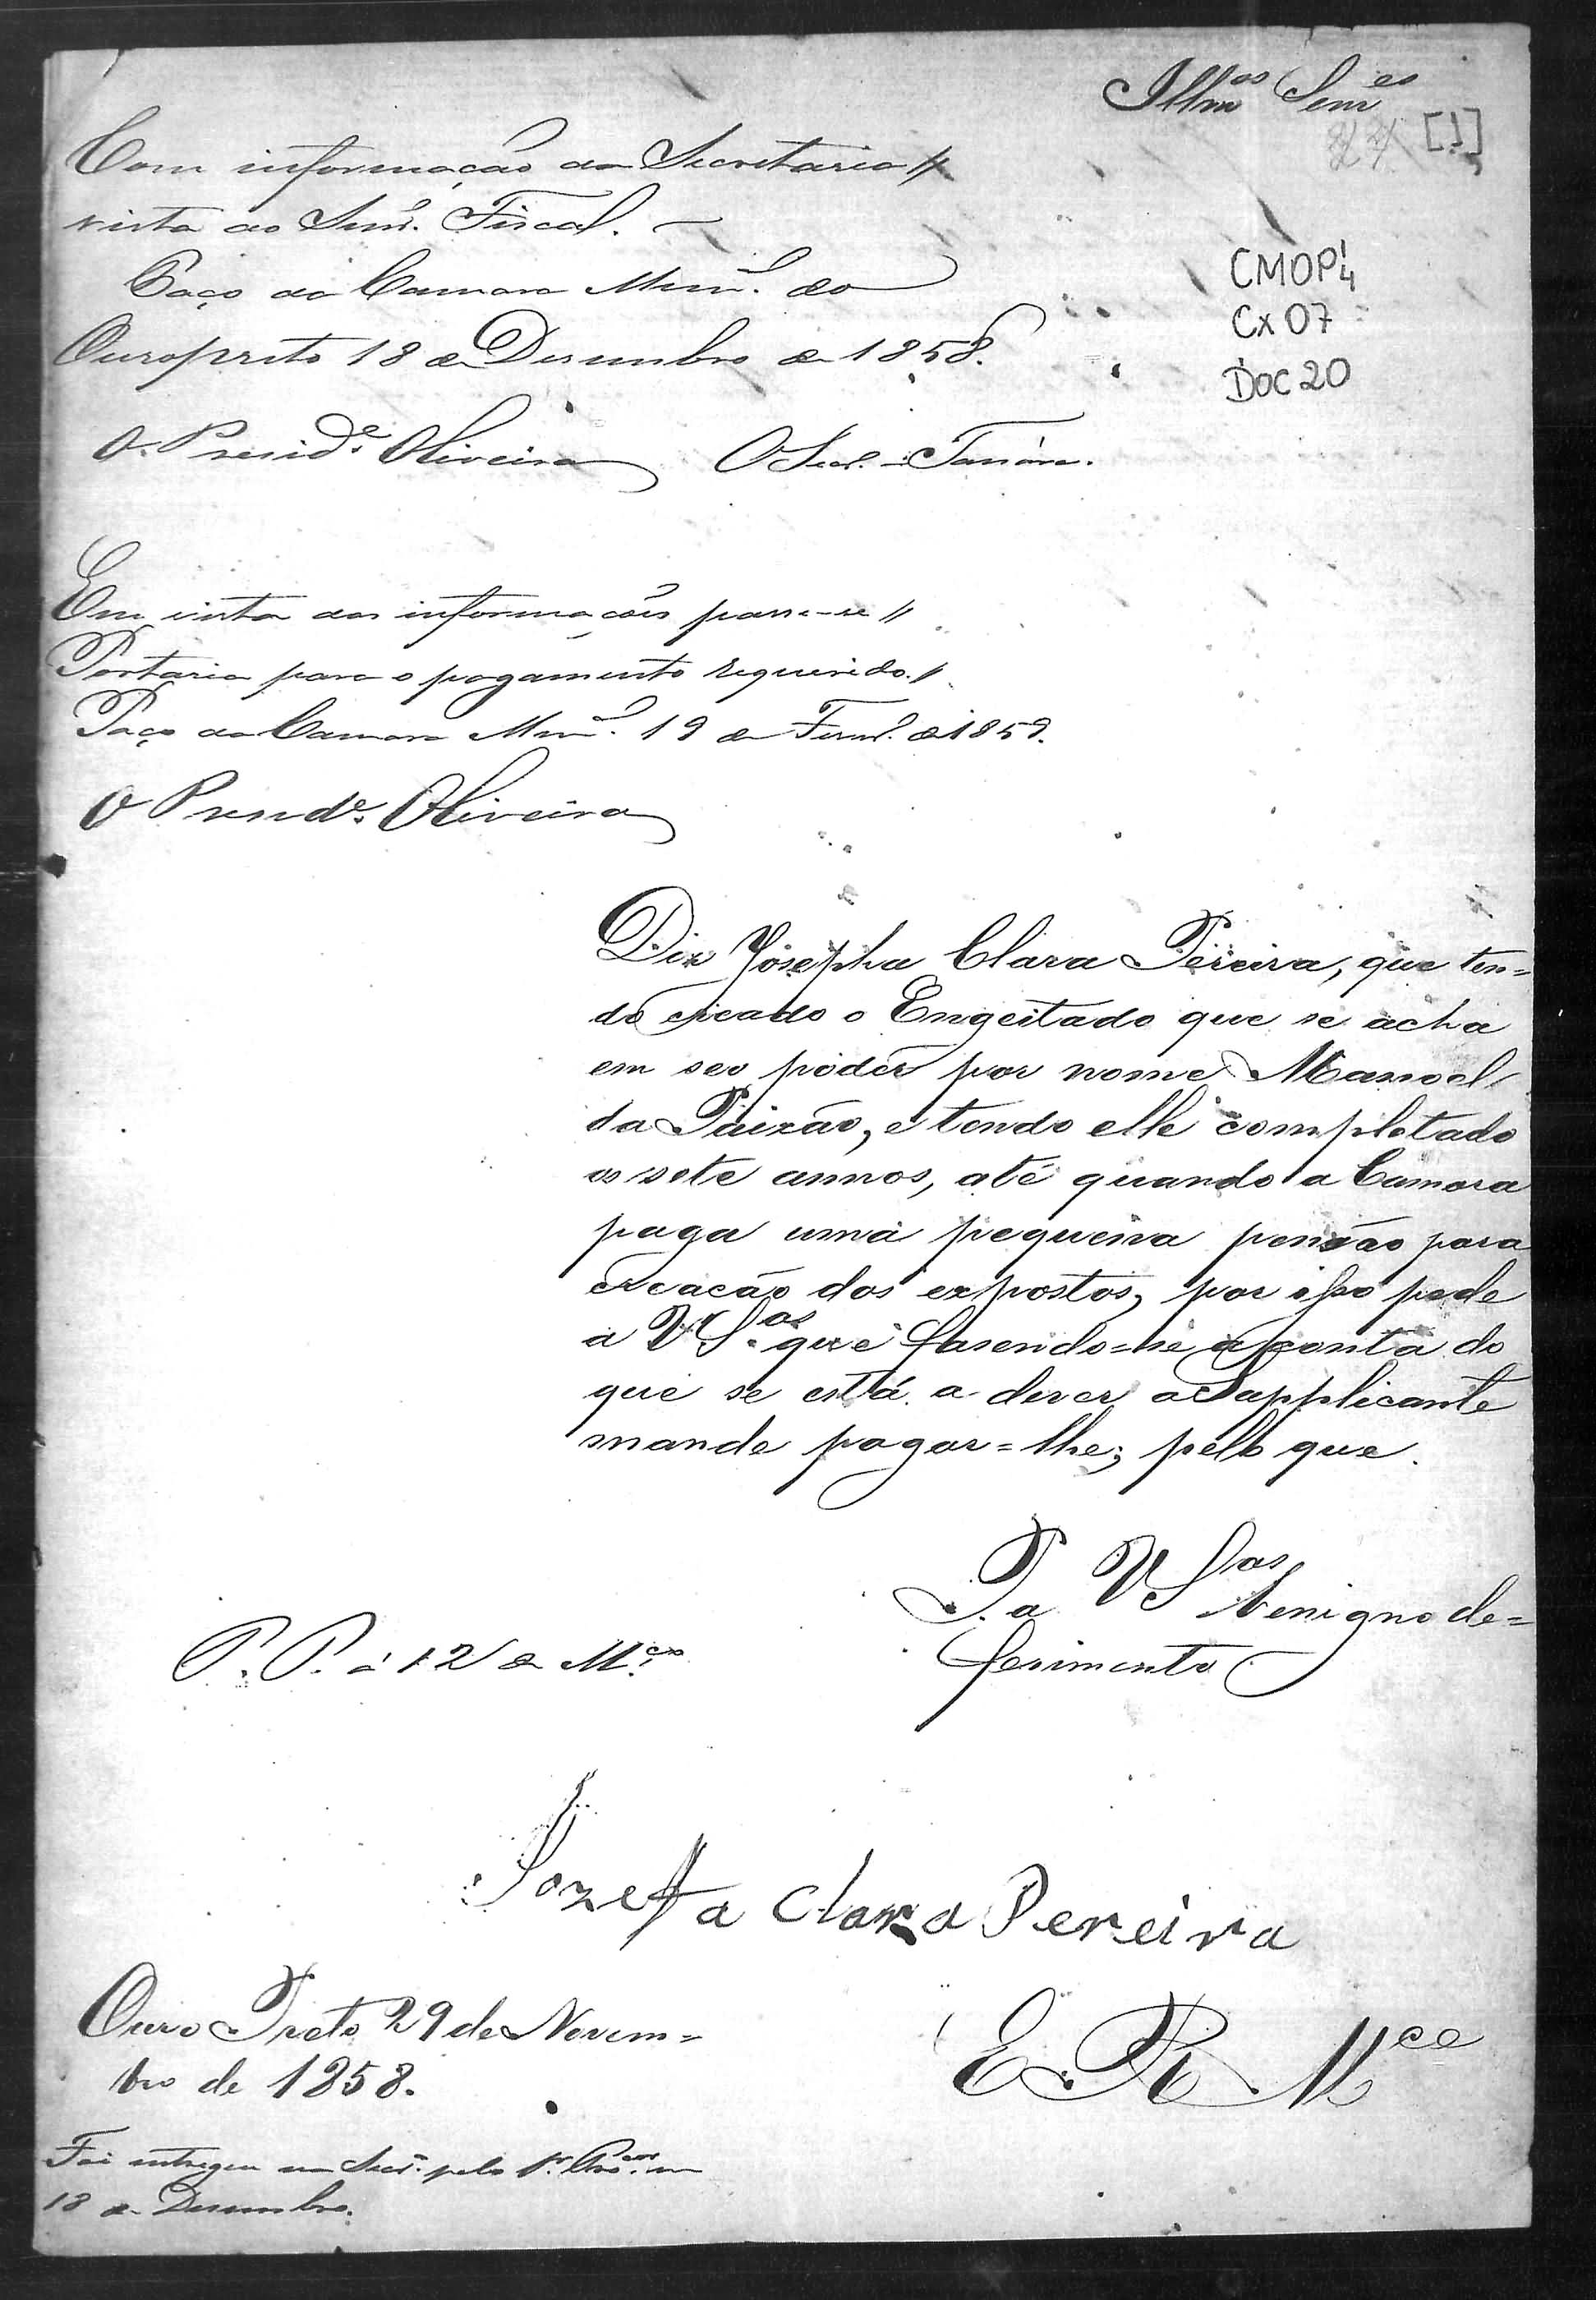 Illm.os Senr.es
[1]
Com informação do Secretario //
vista ao Senr. Fiscal. —
Paço da Camara Mun.al do
Ouropreto 18 de Dezembro de 1858.
O Presid.e Oliveira O Secr.
CMOP 4
Cx 07
DOC 20
Em vista das informações passe-se //
Portaria para o pagamento requerido. //
Paço da Camara Mun.al 19 de Fever.o de 1859.
O Presid.e Oliveira
Diz Josepha Clara Pereira, que ten=
do creado o Engeitado que se acha
em seo poder por nome Manoel
da Paixão, e tendo elle completado
os sete annos, até quando a Camara
paga uma pequena pensão para
creacão dos expostos, por isso pede
a V. S.as que fasendo=se a conta do
que se está a dever a Supplicante
mande pagar=lhe; pelo que.
P. a V S.as benigno de=
ferimento
P. P. á 12 de M.ço
Jozefa Clara Pereira
Ouro Preto 29 de Novem=
bro de 1858.
E. R. M.ce
Foi entregue na Secr. pelo
18 de Dezembro.